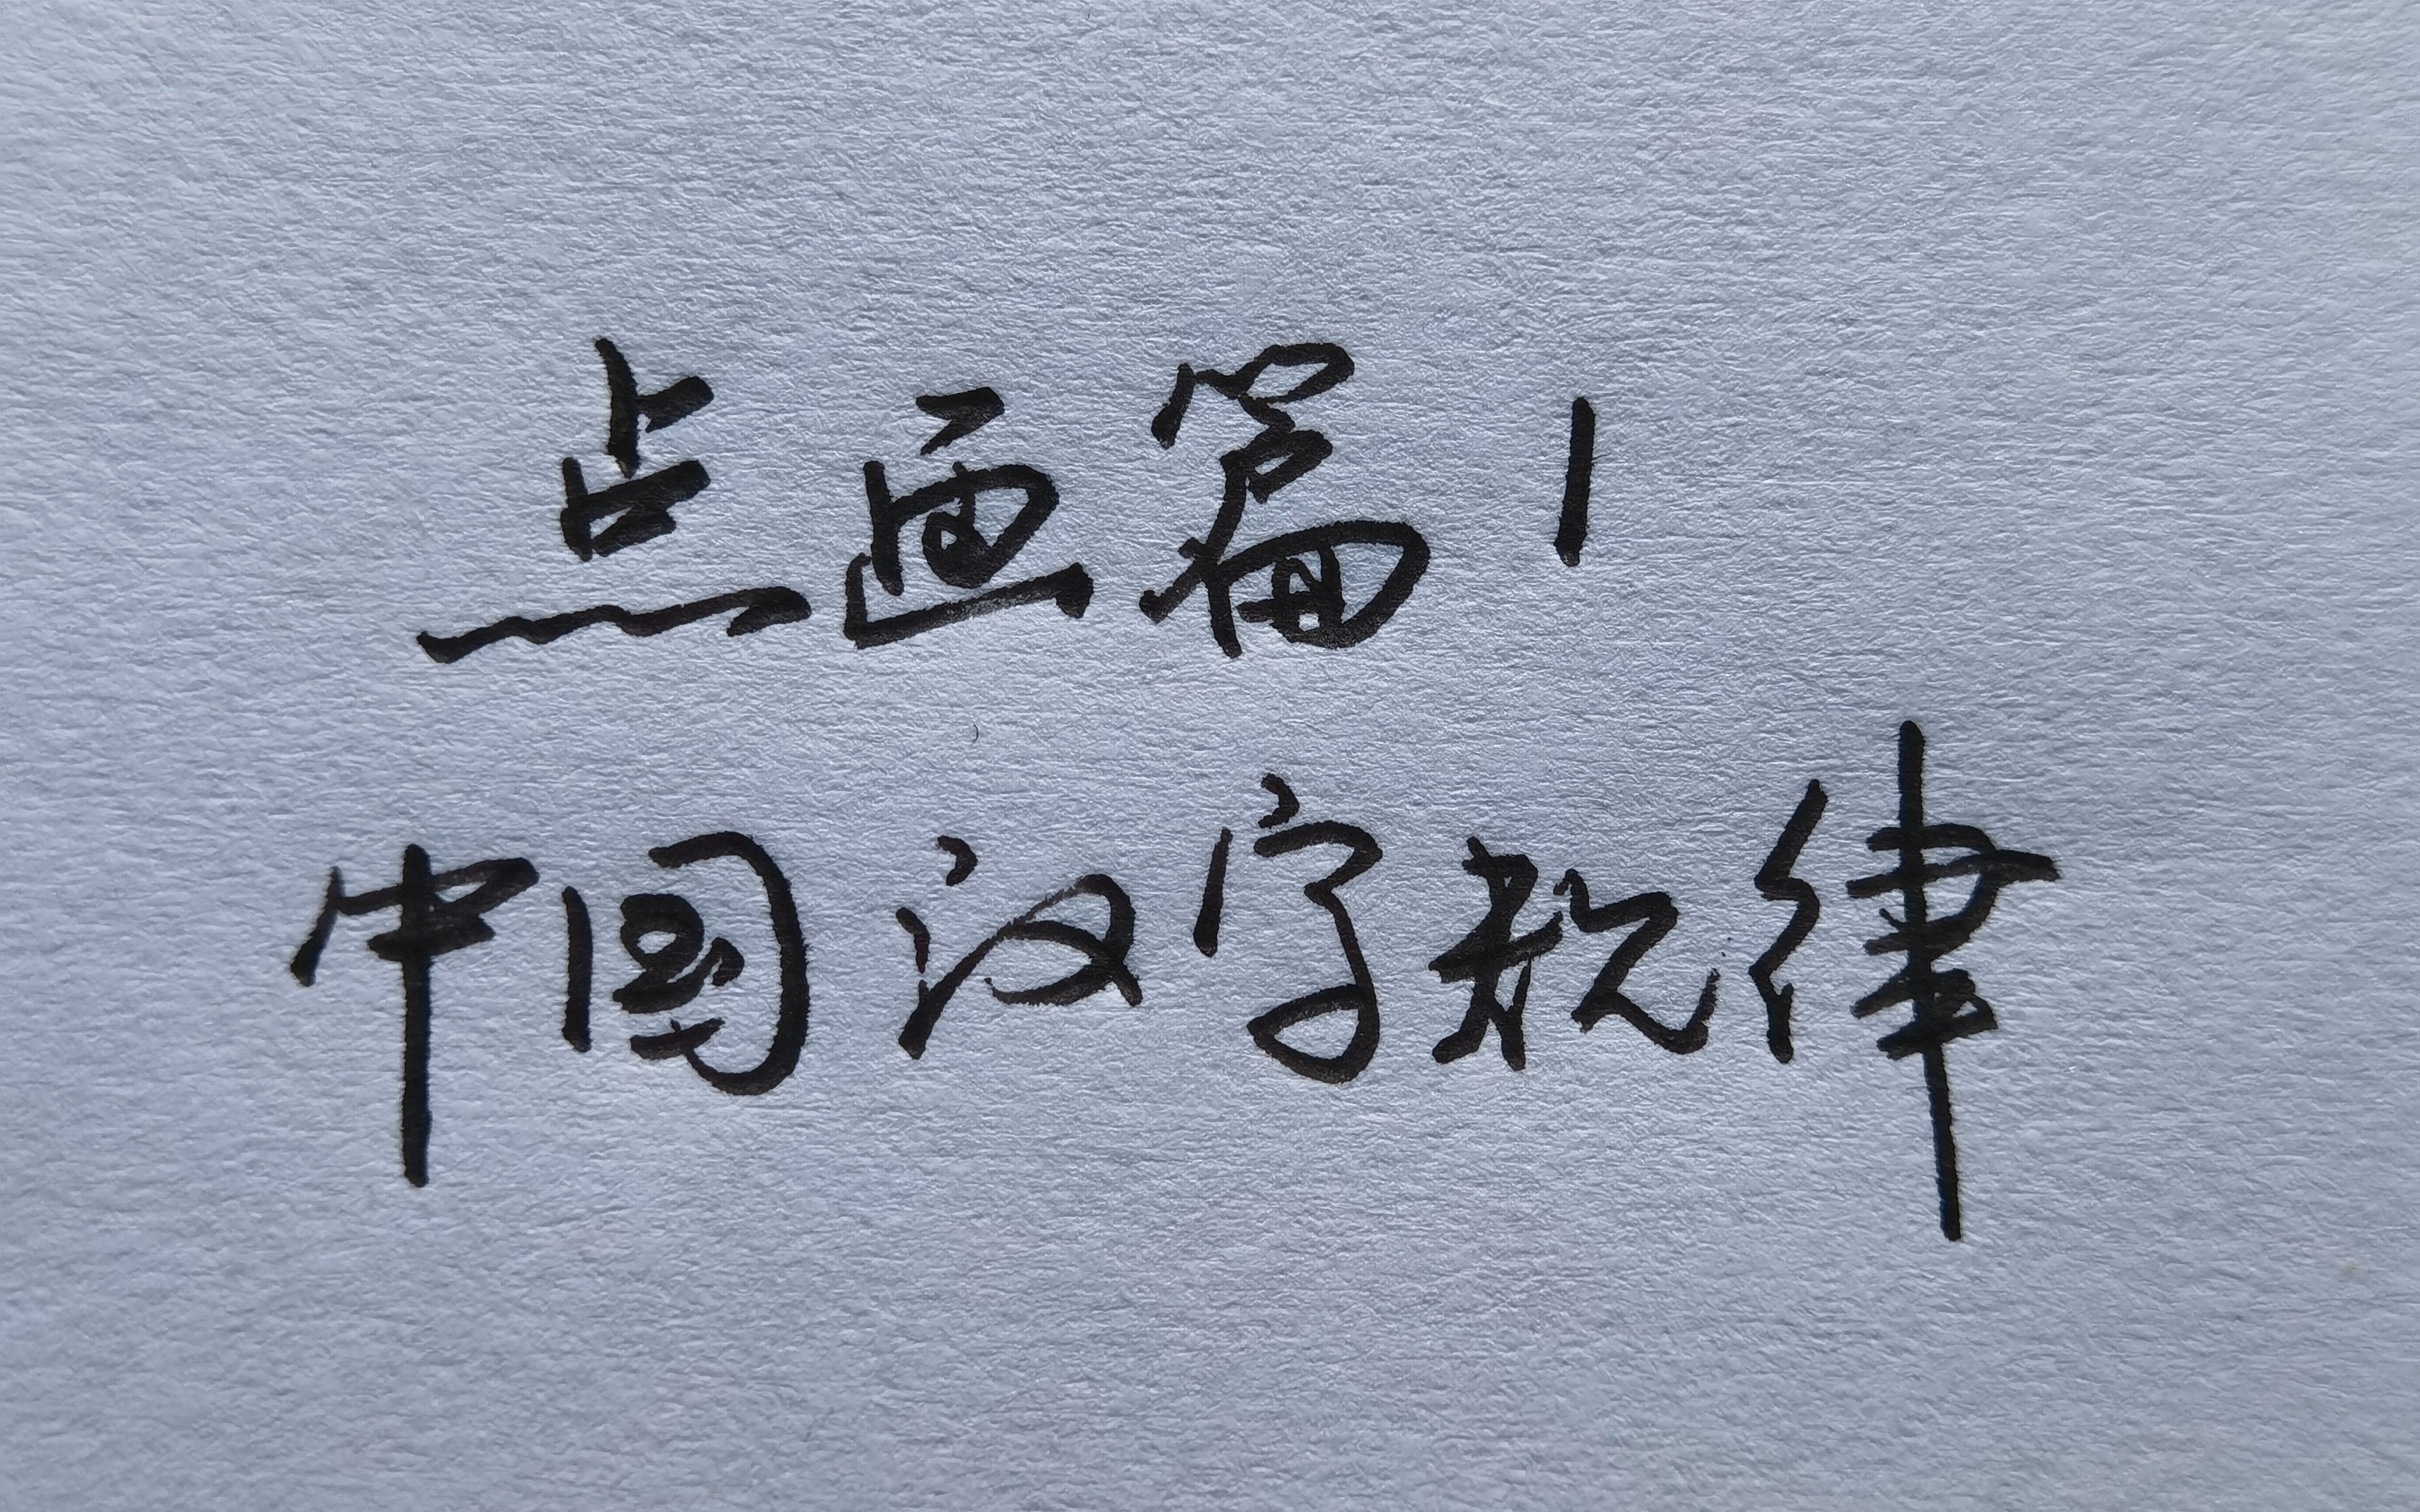 点画篇1
中国汉字规律